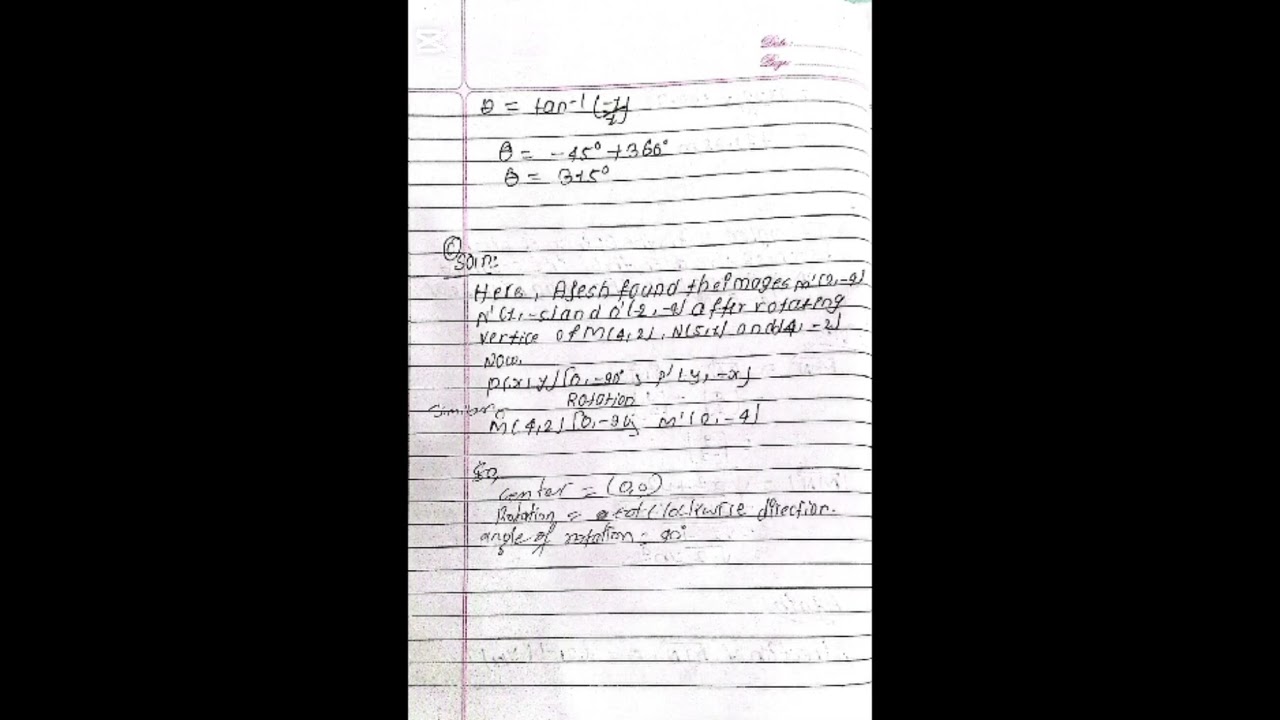 Date:
Page:
θ = tan-1 (-1/1)
θ = -45° +360°
θ = 315°
c
Soln:
Here, Ajesh found the images M'(2,-4)
N'(1,-5) and O'(-2,-4) after rotating
vertice of M(4,2), N(5,1) and (4,-2)
Now,
P(x,y) [0,-90°; P'(y,-x)
Rotation
Similar
M(4,2) [0,-90; M'(2,-4)
So,
center = (0,0)
Rotation = clockwise direction.
angle of rotation = 90°